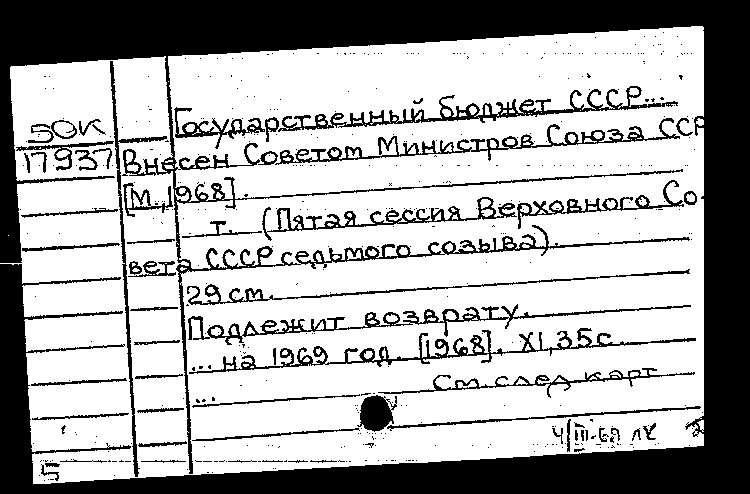 50К Государственный бюджет СССР...
17937 Внесен Советом Министров Союза ССР
[М., 1968].
т. (Пятая сессия Верховного Со-
вета СССР седьмого созыва).
29 см.
Подлежит возврату.
... на 1969 год. [1968]. XI, 35 с.
... См. след. карт
4/III-69
5